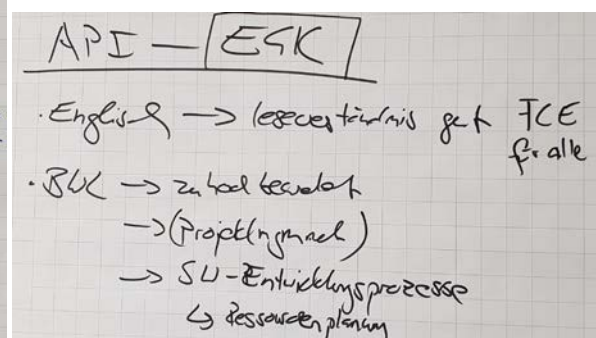 API — ESK
· Englisch → Leseverständnis gut FCE
für alle
· BWL → zu hoch bewertet
→ (Projektmgmach)
→ SW-Entwicklungsprozesse
↳ Ressourcenplanung